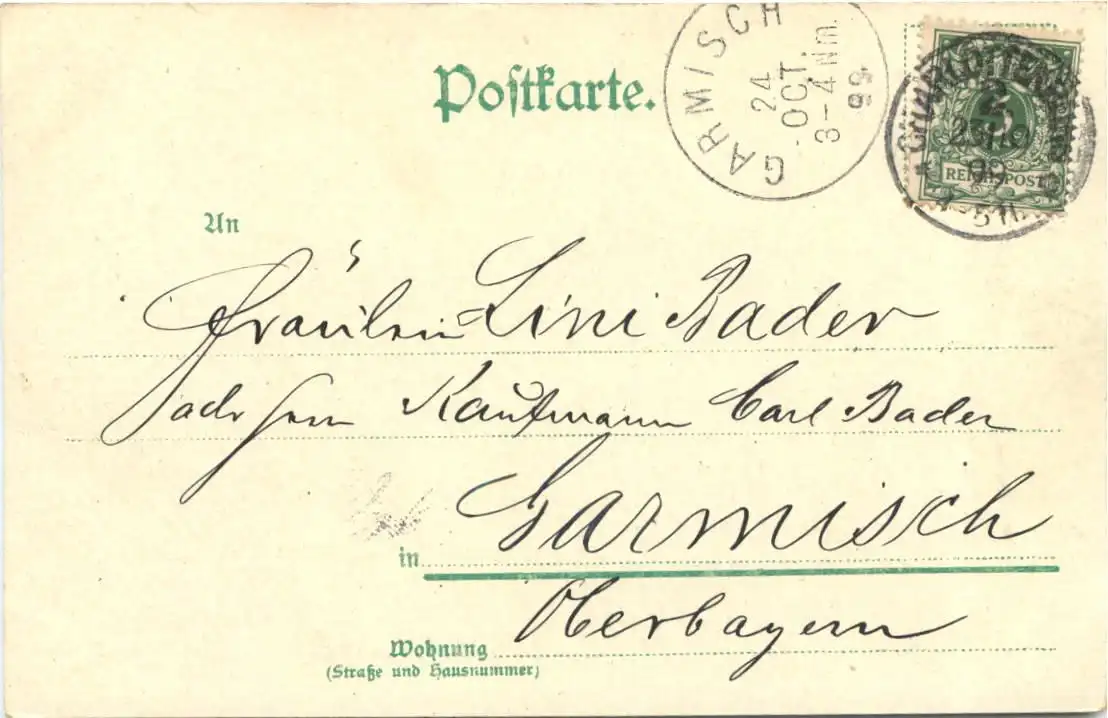 Postkarte.
GARMISCH
24
OCT.
3-4 Nm.
99.
CHARLOTTENBURG
2
5
REICHSPOST
An
Fräulein Lini Bader
adr Herrn Kaufmann Carl Bader
in Garmisch
Oberbayern
Wohnung
(Straße und Hausnummer)